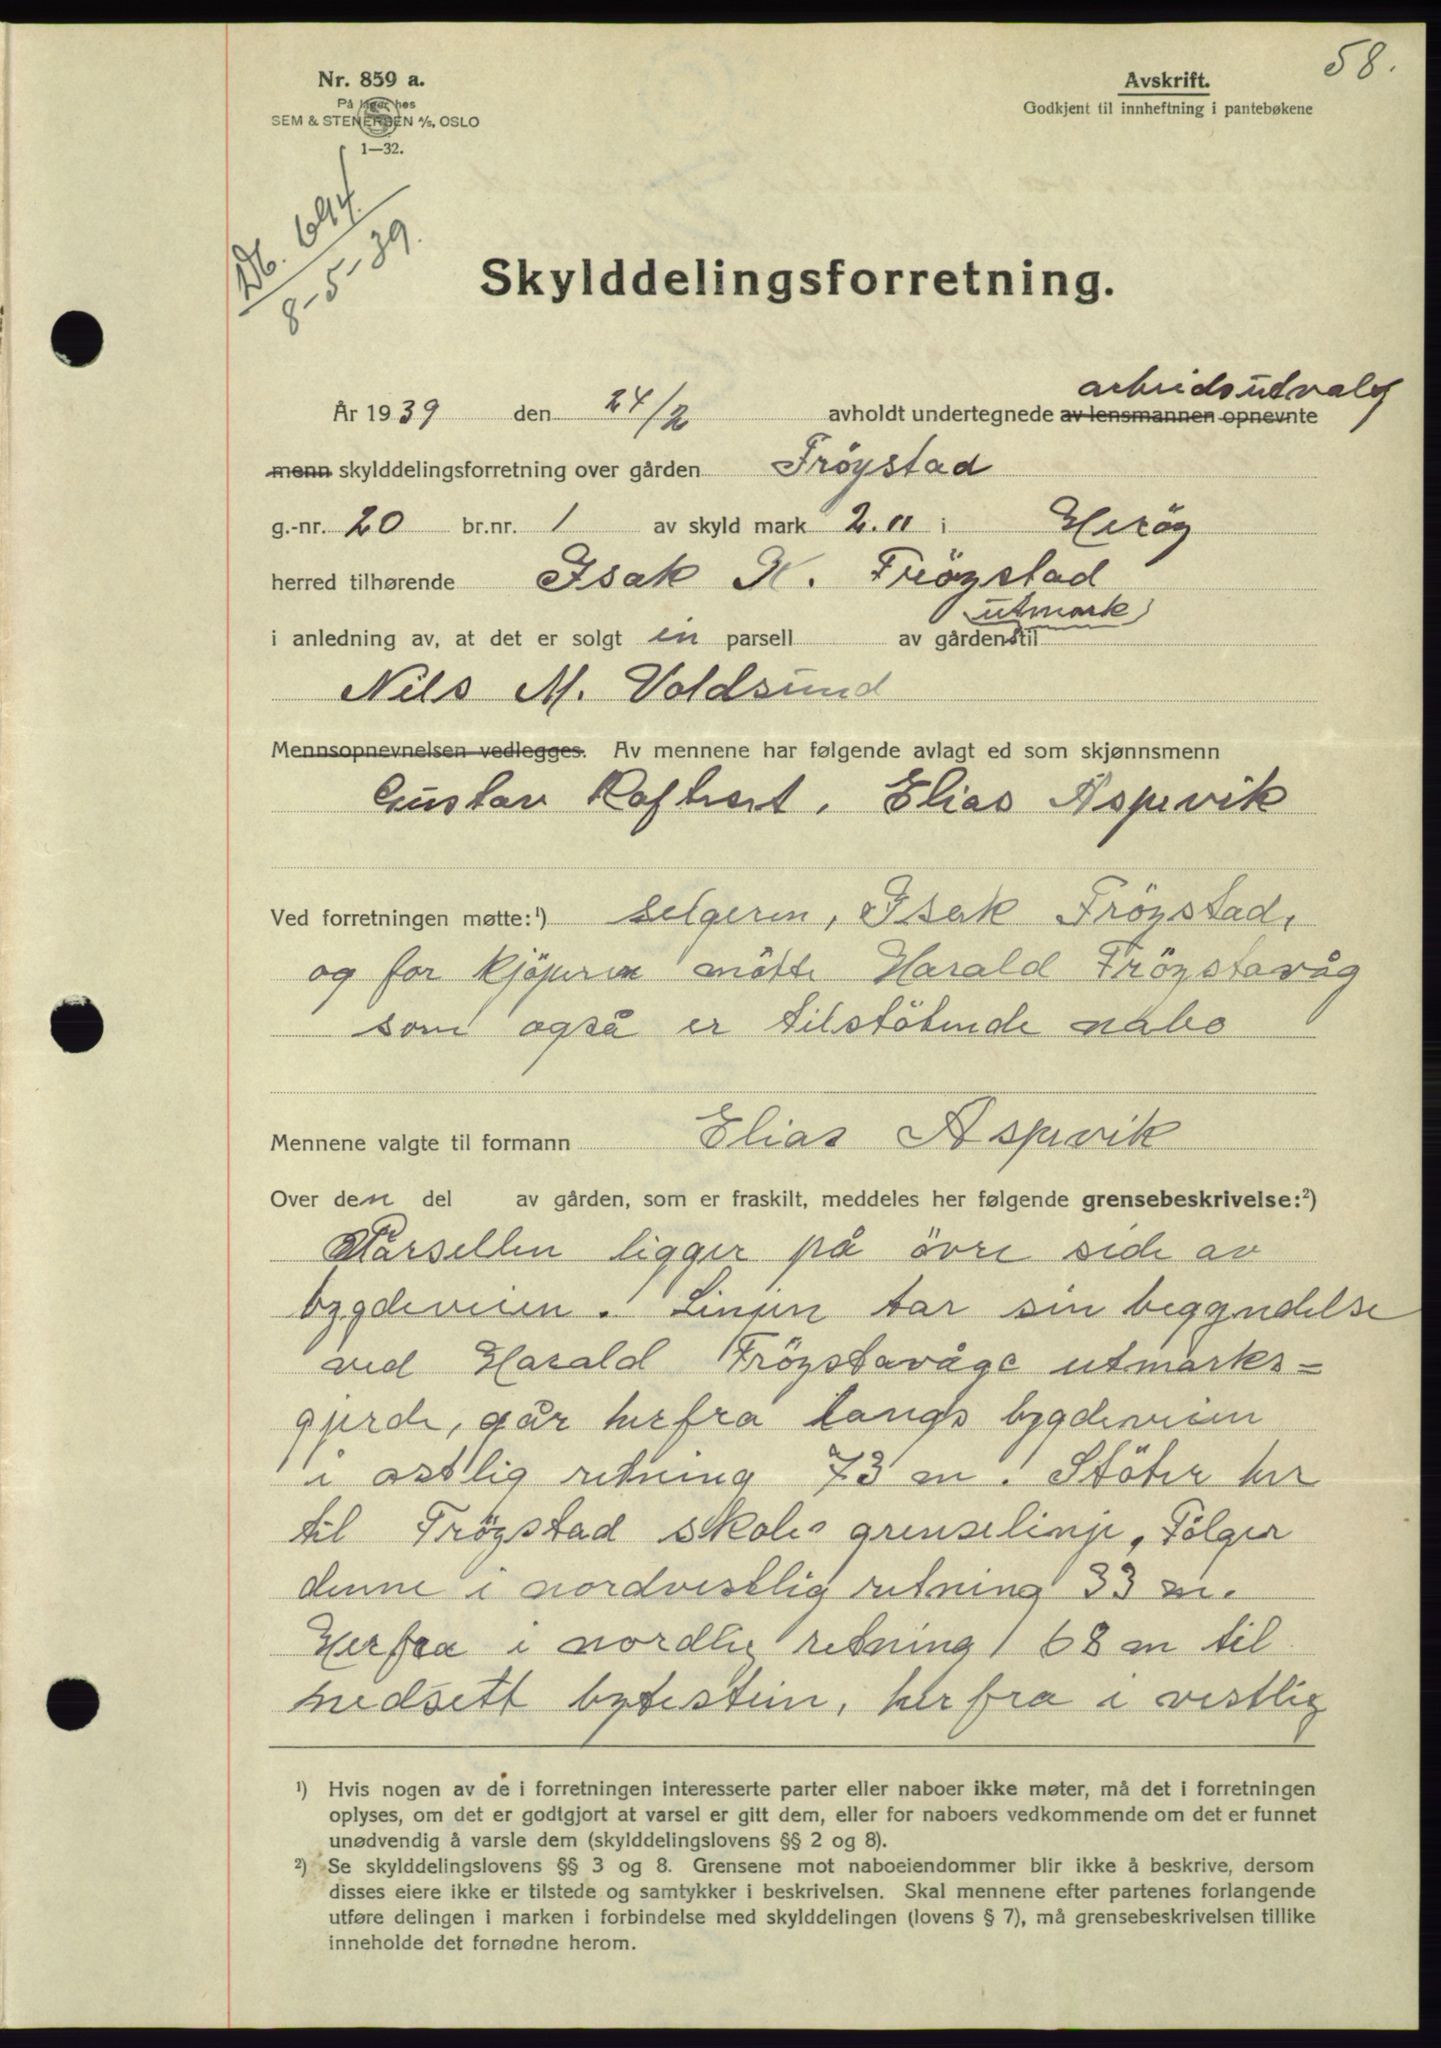 58.
Nr. 859 a.
På lager hos
SEM & STENERSEN A/S, OSLO
1—32.
Avskrift.
Godkjent til innheftning i pantebøkene
Db. 694
8-5-39.
Skylddelingsforretning.
arbeidsutvalg
År 1939 den 24/2 avholdt undertegnede av lensmannen opnevnte
menn skylddelingsforretning over gården Fröystad
g.-nr. 20 br.nr. 1 av skyld mark 2.11 i Heröy
herred tilhørende Isak K. Fröystad
utmark
i anledning av, at det er solgt en parsell av gårdens til
Nils M. Voldsund
Mennsopnevnelsen vedlegges. Av mennene har følgende avlagt ed som skjønnsmenn
Gustav Raftevet, Elias Aspevik
Ved forretningen møtte:¹) selgeren, Isak Fröystad,
og for kjöperen mötte Harald Fröystavåg
som også er tilstötende nabo
Mennene valgte til formann Elias Aspevik
Over den del av gården, som er fraskilt, meddeles her følgende grensebeskrivelse:²)
Parsellen ligger på övre side av
bygdeveien. Linjen tar sin begyndelse
ved Harald Fröystavågs utmarks=
gjerde, går herfra langs bygdeveien
i østlig retning 73 m. Stöter her
til Fröystad skoles grenselinje, Fölger
denne i nordvestlig retning 33 m.
Herfra i nordlig retning 68 m til
nedsett bytestein, herfra i vestlig
¹) Hvis nogen av de i forretningen interesserte parter eller naboer ikke møter, må det i forretningen
oplyses, om det er godtgjort at varsel er gitt dem, eller for naboers vedkommende om det er funnet
unødvendig å varsle dem (skylddelingslovens §§ 2 og 8).
²) Se skylddelingslovens §§ 3 og 8. Grensene mot naboeiendommer blir ikke å beskrive, dersom
disses eiere ikke er tilstede og samtykker i beskrivelsen. Skal mennene efter partenes forlangende
utføre delingen i marken i forbindelse med skylddelingen (lovens § 7), må grensebeskrivelsen tillike
inneholde det fornødne herom.